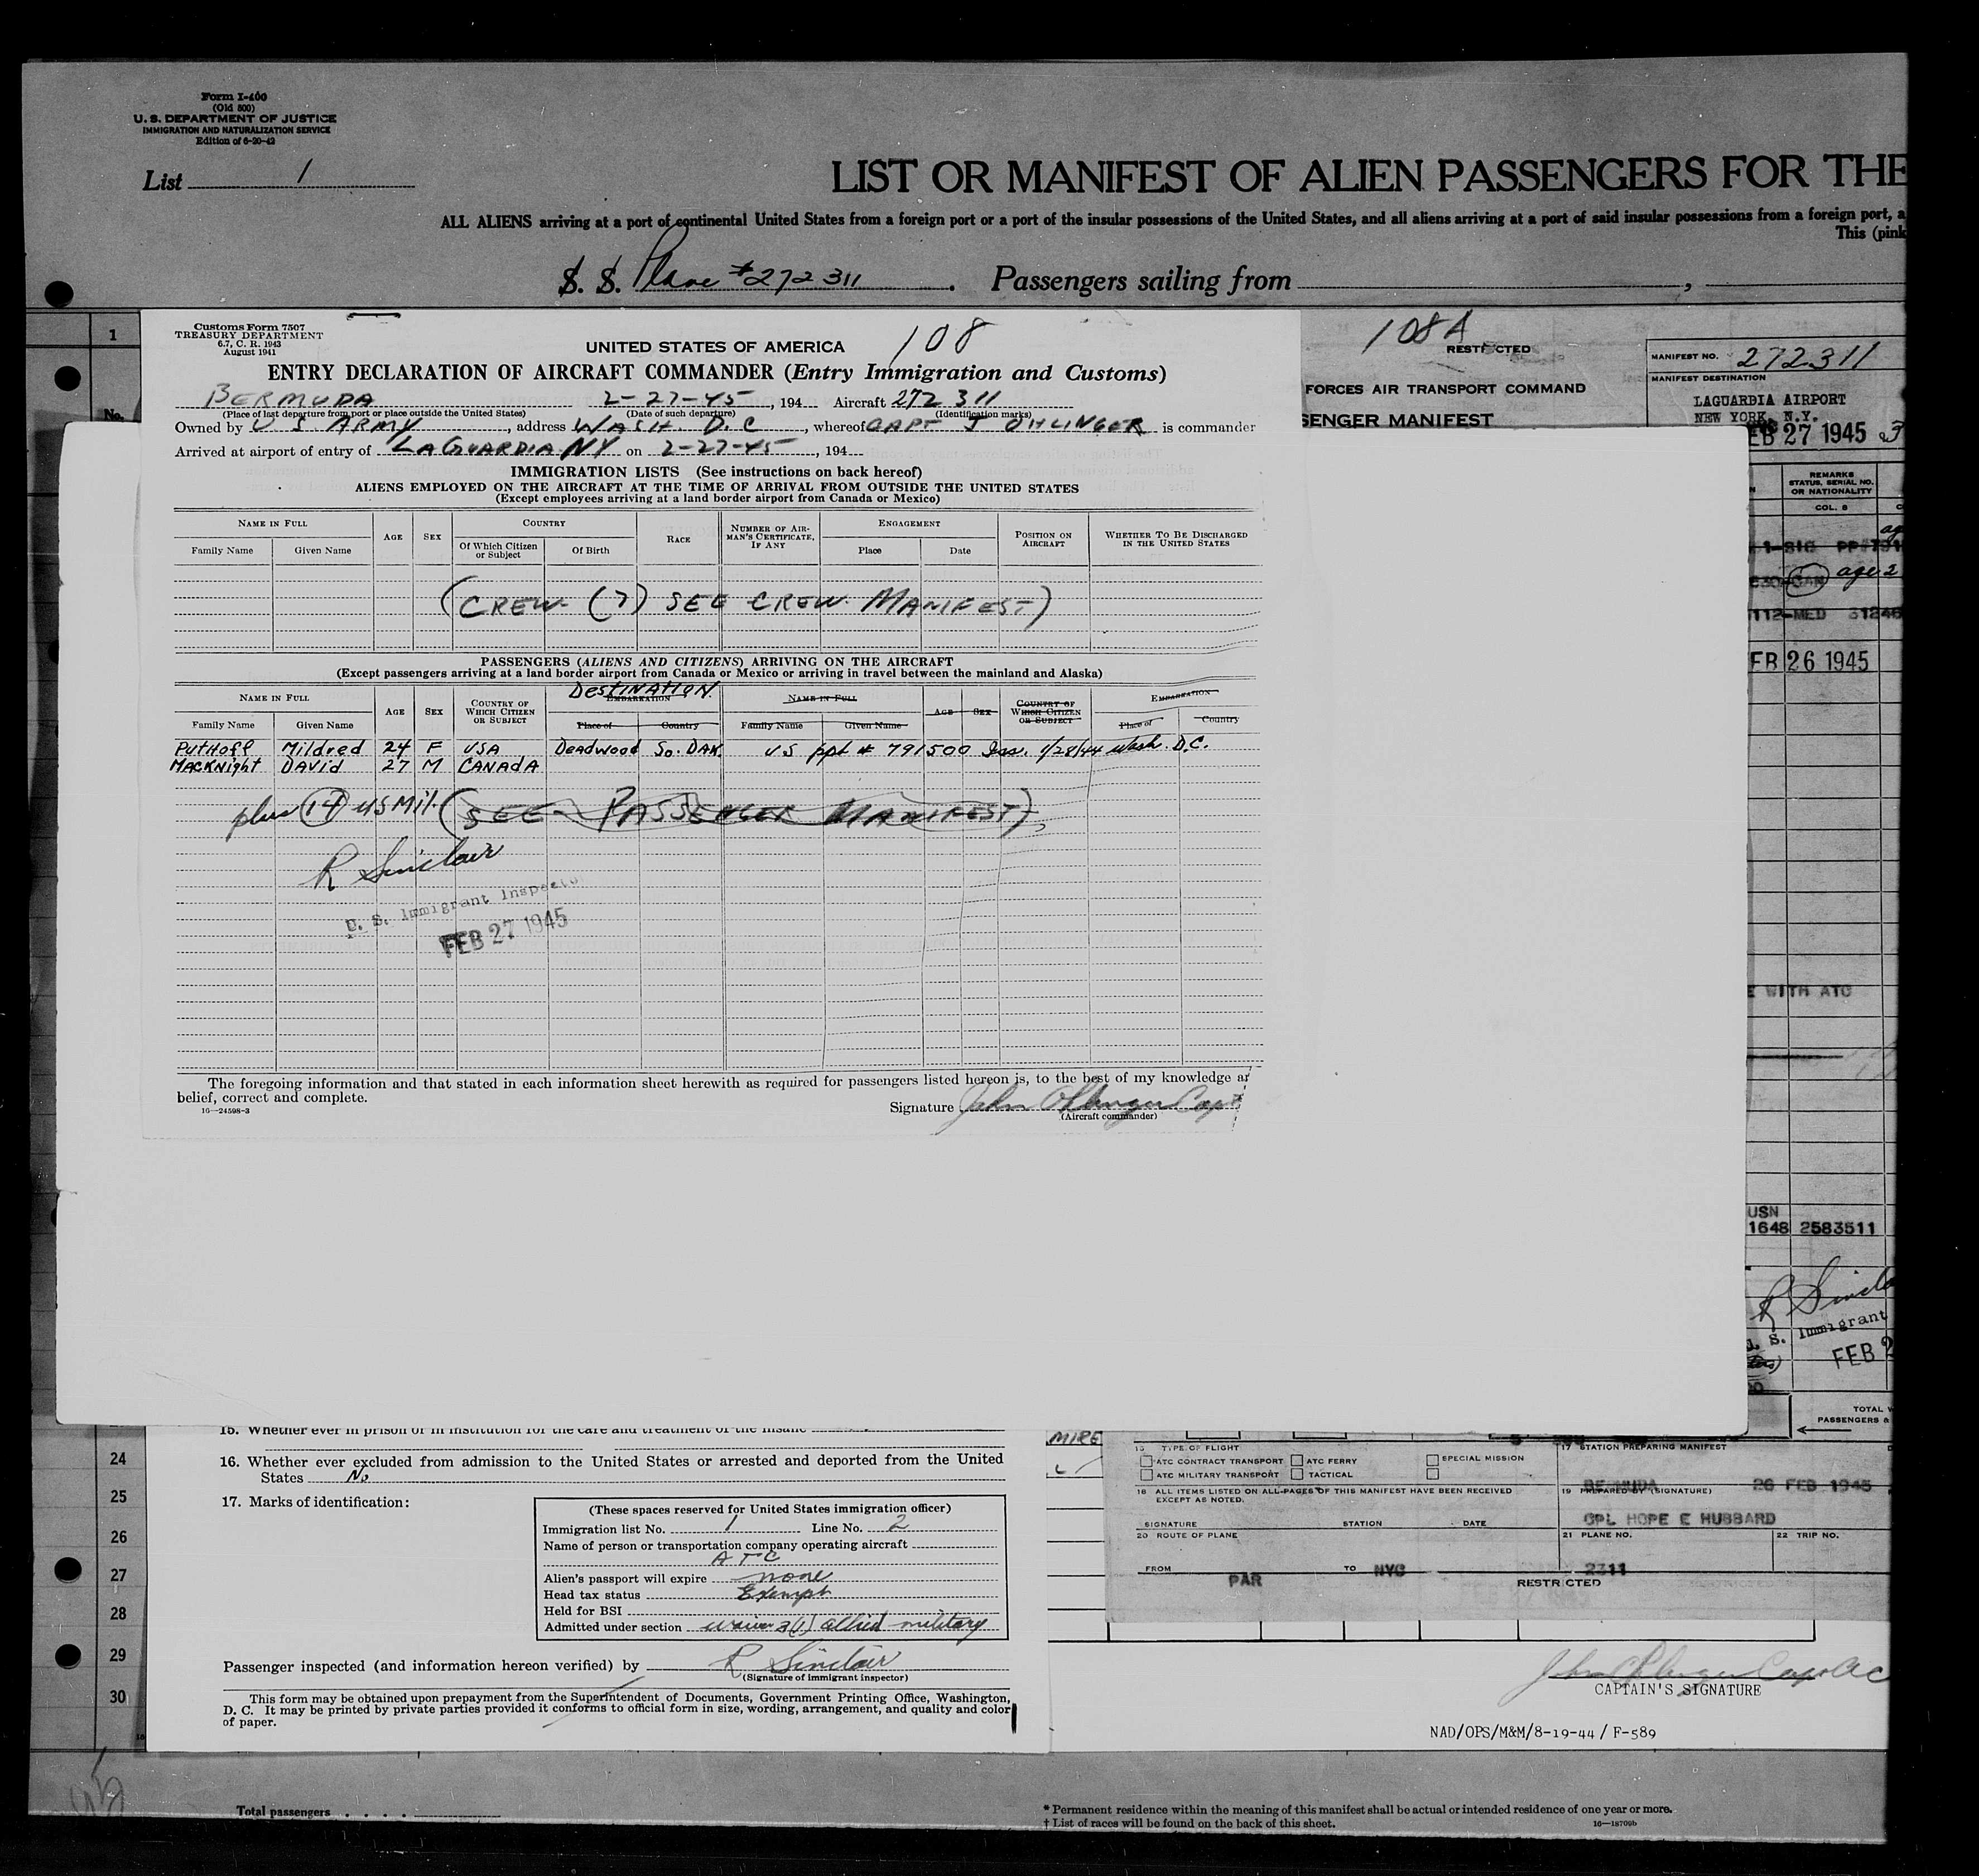 Form I-400
(Old 500)
U. S. DEPARTMENT OF JUSTICE
IMMIGRATION AND NATURALIZATION SERVICE
Edition of 6-20-42
List 1
LIST OR MANIFEST OF ALIEN PASSENGERS FOR THE
ALL ALIENS arriving at a port of continental United States from a foreign port or a port of the insular possessions of the United States, and all aliens arriving at a port of said insular possessions from a foreign port, a
This (pink
S. S. Plane #272311. Passengers sailing from
1
No.
Customs Form 7507
TREASURY DEPARTMENT
6.7, C. R. 1943
August 1941
UNITED STATES OF AMERICA
108
ENTRY DECLARATION OF AIRCRAFT COMMANDER (Entry Immigration and Customs)
BERMUDA 2-27-45, 194 Aircraft 272311
(Place of last departure from port or place outside the United States) (Date of such departure) (Identification marks)
Owned by U S ARMY, address WASH. D.C, whereof CAPT J OHLINGER is commander
Arrived at airport of entry of LAGUARDIA NY on 2-27-45, 194
IMMIGRATION LISTS (See instructions on back hereof)
ALIENS EMPLOYED ON THE AIRCRAFT AT THE TIME OF ARRIVAL FROM OUTSIDE THE UNITED STATES
(Except employees arriving at a land border airport from Canada or Mexico)
NAME IN FULL AGE SEX COUNTRY RACE NUMBER OF AIRMAN'S CERTIFICATE, IF ANY ENGAGEMENT POSITION ON AIRCRAFT WHETHER TO BE DISCHARGED IN THE UNITED STATES
Family Name Given Name Of Which Citizen or Subject Of Birth Place Date
(CREW (7) SEE CREW MANIFEST)
PASSENGERS (ALIENS AND CITIZENS) ARRIVING ON THE AIRCRAFT
(Except passengers arriving at a land border airport from Canada or Mexico or arriving in travel between the mainland and Alaska)
DESTINATION
NAME IN FULL AGE SEX COUNTRY OF WHICH CITIZEN OR SUBJECT EMBARKATION NAME IN FULL AGE SEX COUNTRY OF WHICH CITIZEN OR SUBJECT EMBARKATION
Family Name Given Name Place of Country Family Name Given Name Place of Country
Puthoff Mildred 24 F USA Deadwood So. DAK. U S ppt # 791500 Iss. 1/28/44 Wash. D.C.
MacKnight DAVID 27 M CANADA
plus (14) US Mil. (SEE PASSENGER MANIFEST)
R Sinclair
U. S. Immigrant Inspector
FEB 27 1945
The foregoing information and that stated in each information sheet herewith as required for passengers listed hereon is, to the best of my knowledge ar
belief, correct and complete.
16—24598-3
Signature John Ohlinger Capt
(Aircraft commander)
108A
RESTRICTED
FORCES AIR TRANSPORT COMMAND
SENGER MANIFEST
MANIFEST NO. 272311
MANIFEST DESTINATION
LAGUARDIA AIRPORT
NEW YORK, N.Y.
EB 27 1945 3
REMARKS
STATUS, SERIAL NO.
OR NATIONALITY
COL. 8
1-SIG PP#791
630-CAN age 2
112-MED 31246
EB 26 1945
E WITH ATC
USN
1648 2583511
R Sincla
U. S. Immigrant
FEB 2
TOTAL
PASSENGERS &
15. Whether ever in prison or in institution for the care and treatment of the insane
16. Whether ever excluded from admission to the United States or arrested and deported from the United
States No
17. Marks of identification:
(These spaces reserved for United States immigration officer)
Immigration list No. 1 Line No. 2
Name of person or transportation company operating aircraft
ATC
Alien's passport will expire none
Head tax status Exempt
Held for BSI
Admitted under section waiver 3(1) allied military
Passenger inspected (and information hereon verified) by R Sinclair
(Signature of immigrant inspector)
This form may be obtained upon prepayment from the Superintendent of Documents, Government Printing Office, Washington,
D. C. It may be printed by private parties provided it conforms to official form in size, wording, arrangement, and quality and color
of paper.
24
25
26
27
28
29
30
MIRE
15 TYPE OF FLIGHT
ATC CONTRACT TRANSPORT ATC FERRY SPECIAL MISSION
ATC MILITARY TRANSPORT TACTICAL
17 STATION PREPARING MANIFEST
BERMUDA 26 FEB 1945
18 ALL ITEMS LISTED ON ALL PAGES OF THIS MANIFEST HAVE BEEN RECEIVED
EXCEPT AS NOTED.
19 PREPARED BY (SIGNATURE)
CPL HOPE E HUBBARD
SIGNATURE STATION DATE
20 ROUTE OF PLANE
21 PLANE NO. 22 TRIP NO.
FROM PAR TO NYC 2311
RESTRICTED
John Ohlinger Capt AC
CAPTAIN'S SIGNATURE
NAD/OPS/M&M/8-19-44 / F-589
Total passengers
* Permanent residence within the meaning of this manifest shall be actual or intended residence of one year or more.
† List of races will be found on the back of this sheet.
16—18709b